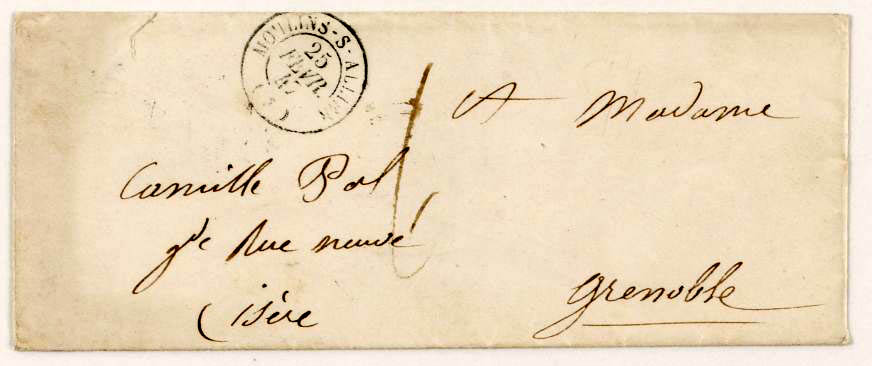 MOULINS-S-ALLIER
25
FEVR.
47
(3)
A Madame
Camille Pal
gde Rue neuve
Grenoble
(isère